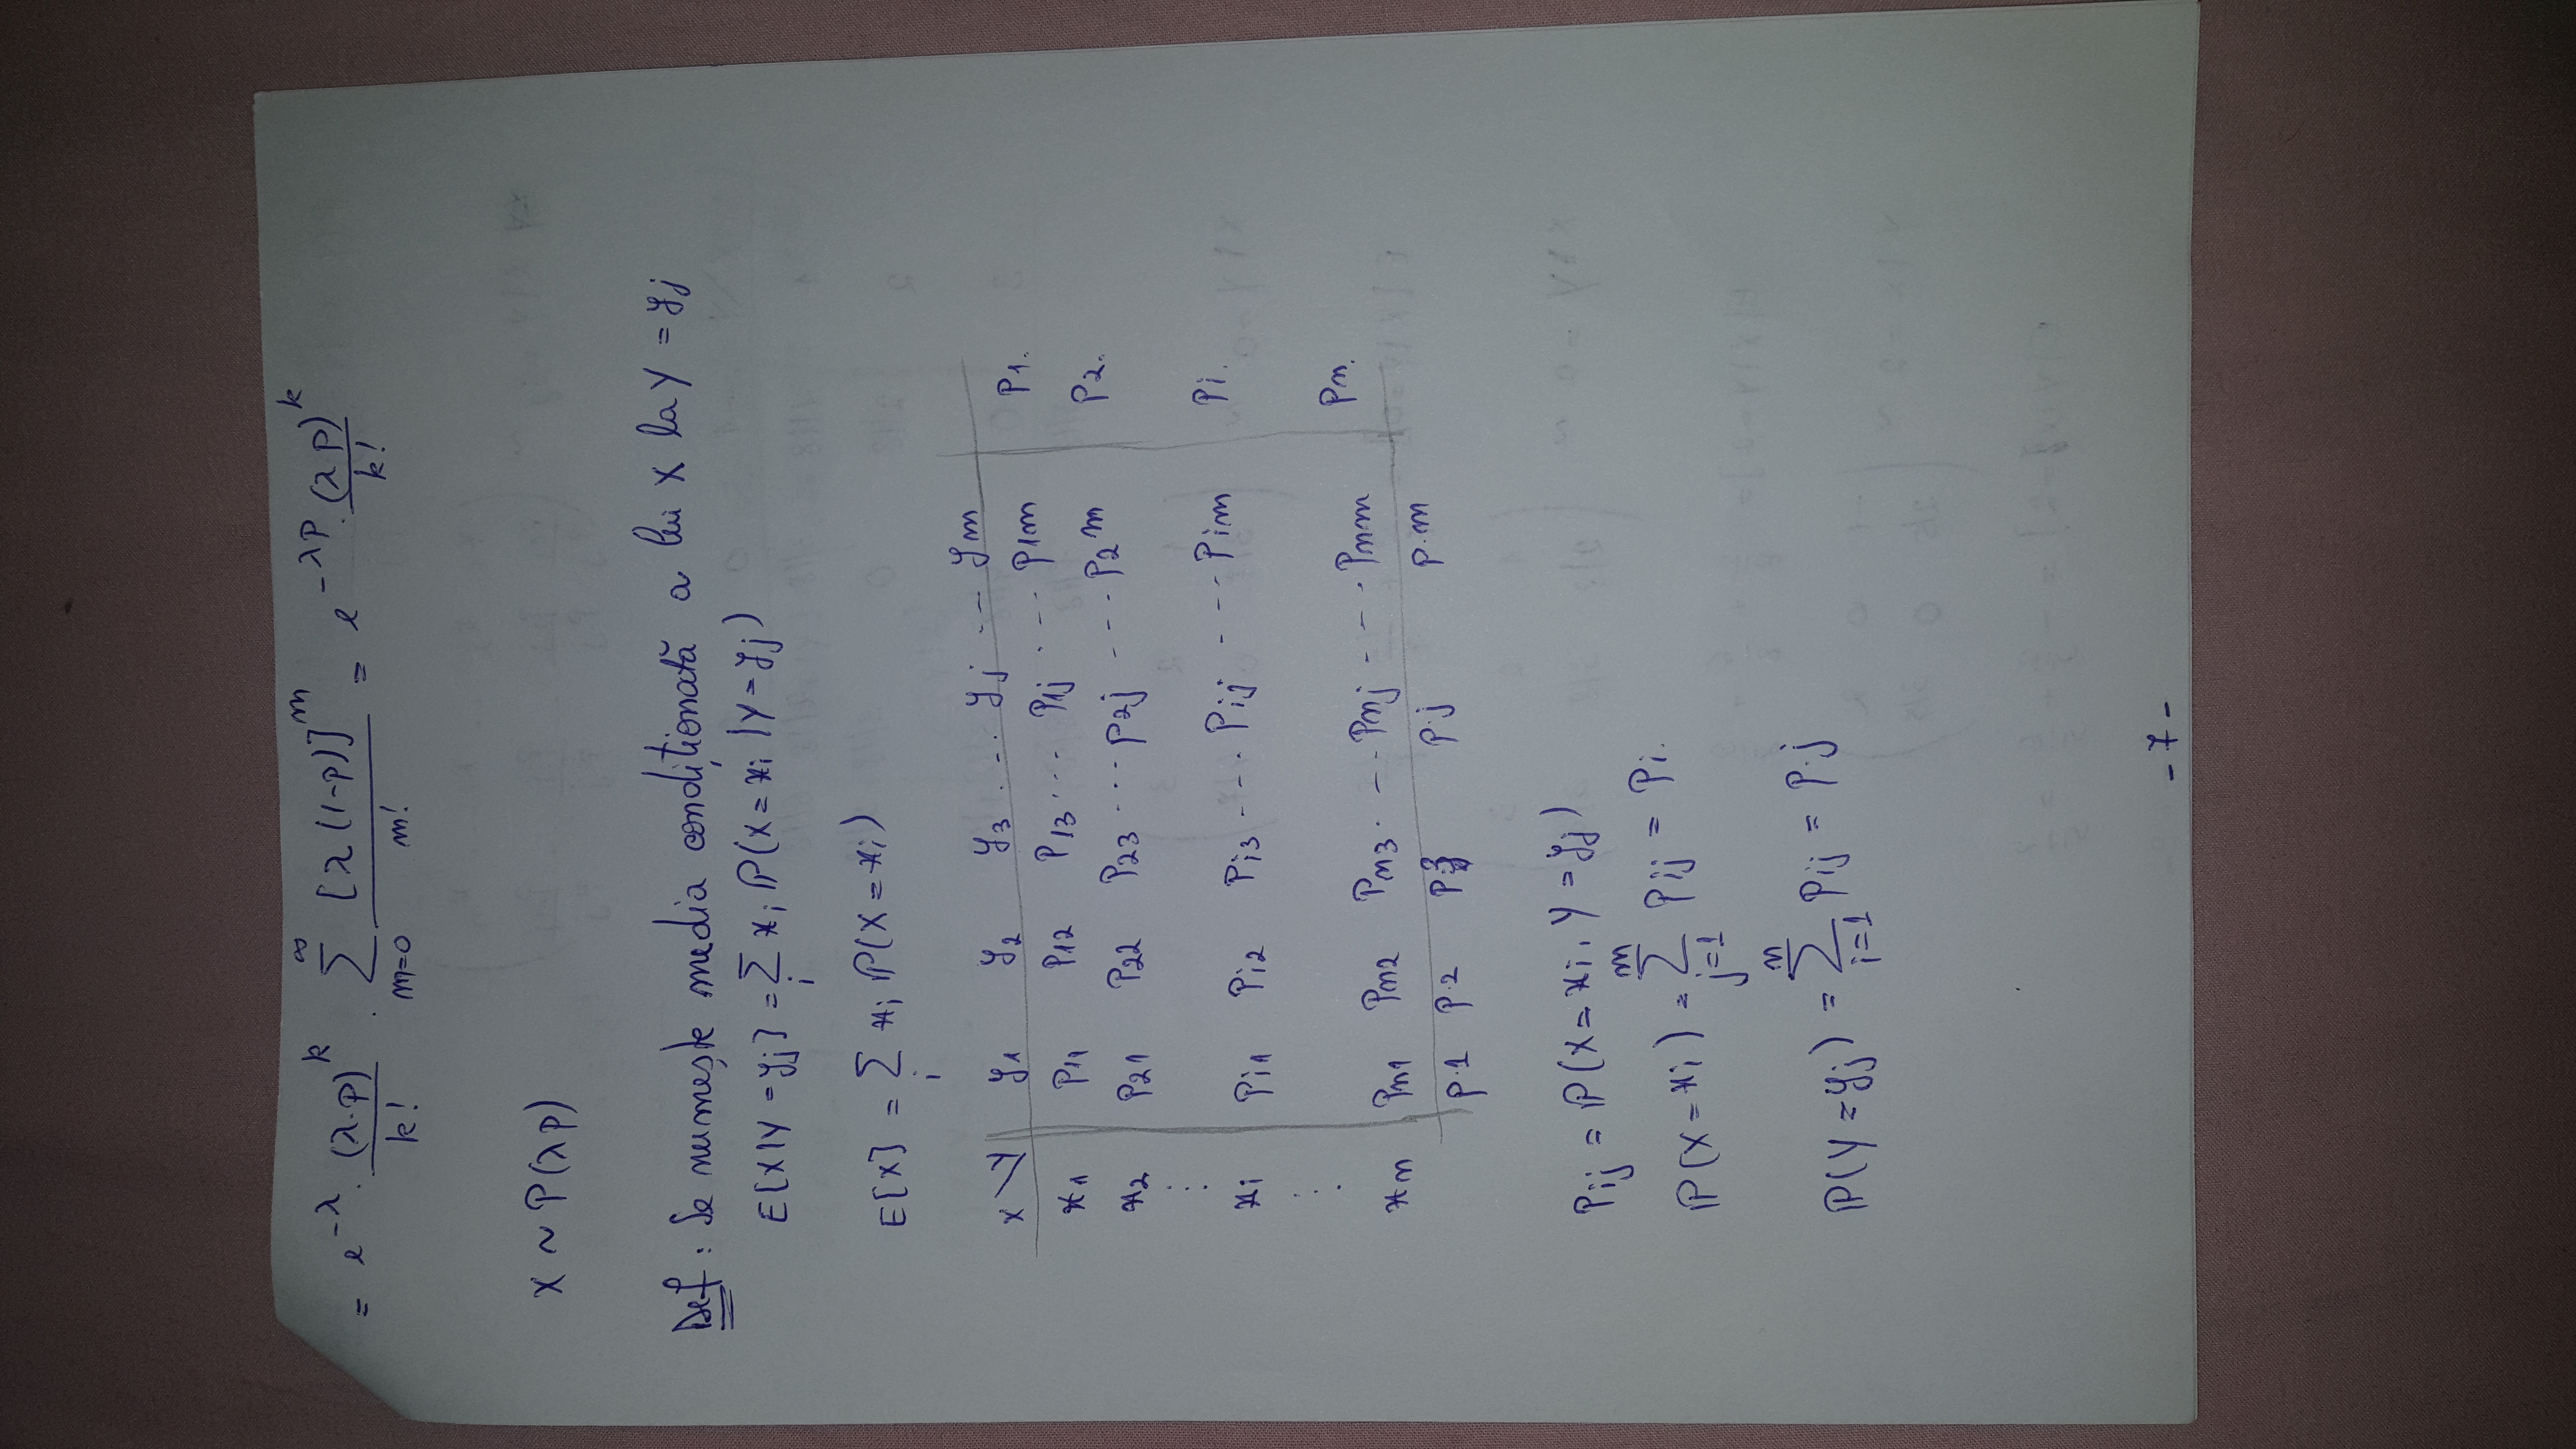 = e^{-λ} · \frac{(λ·p)^k}{k!} · \sum_{m=0}^{∞} \frac{[λ(1-p)]^m}{m!} = e^{-λp} · \frac{(λp)^k}{k!}
X ~ P(λp)
Def: Se numește media condiționată a lui X la Y = yj
E[X|Y=yj] = \sum_i xi ℙ(X=xi|Y=yj)
E[X] = \sum_i xi ℙ(X=xi)
X\Y y1 y2 y3 ... yj ... ym
x1 p11 p12 p13 ... p1j ... p1m p1.
x2 p21 p22 p23 ... p2j ... p2m p2.
⋮
xi pi1 pi2 pi3 ... pij ... pim pi.
⋮
xn pn1 pn2 pn3 ... pnj ... pnm pn.
p.1 p.2 p.3 p.j p.m
pij = ℙ(X=xi, Y=yj)
ℙ(X=xi) = \sum_{j=1}^{m} pij = pi.
ℙ(Y=yj) = \sum_{i=1}^{n} pij = p.j
-7-